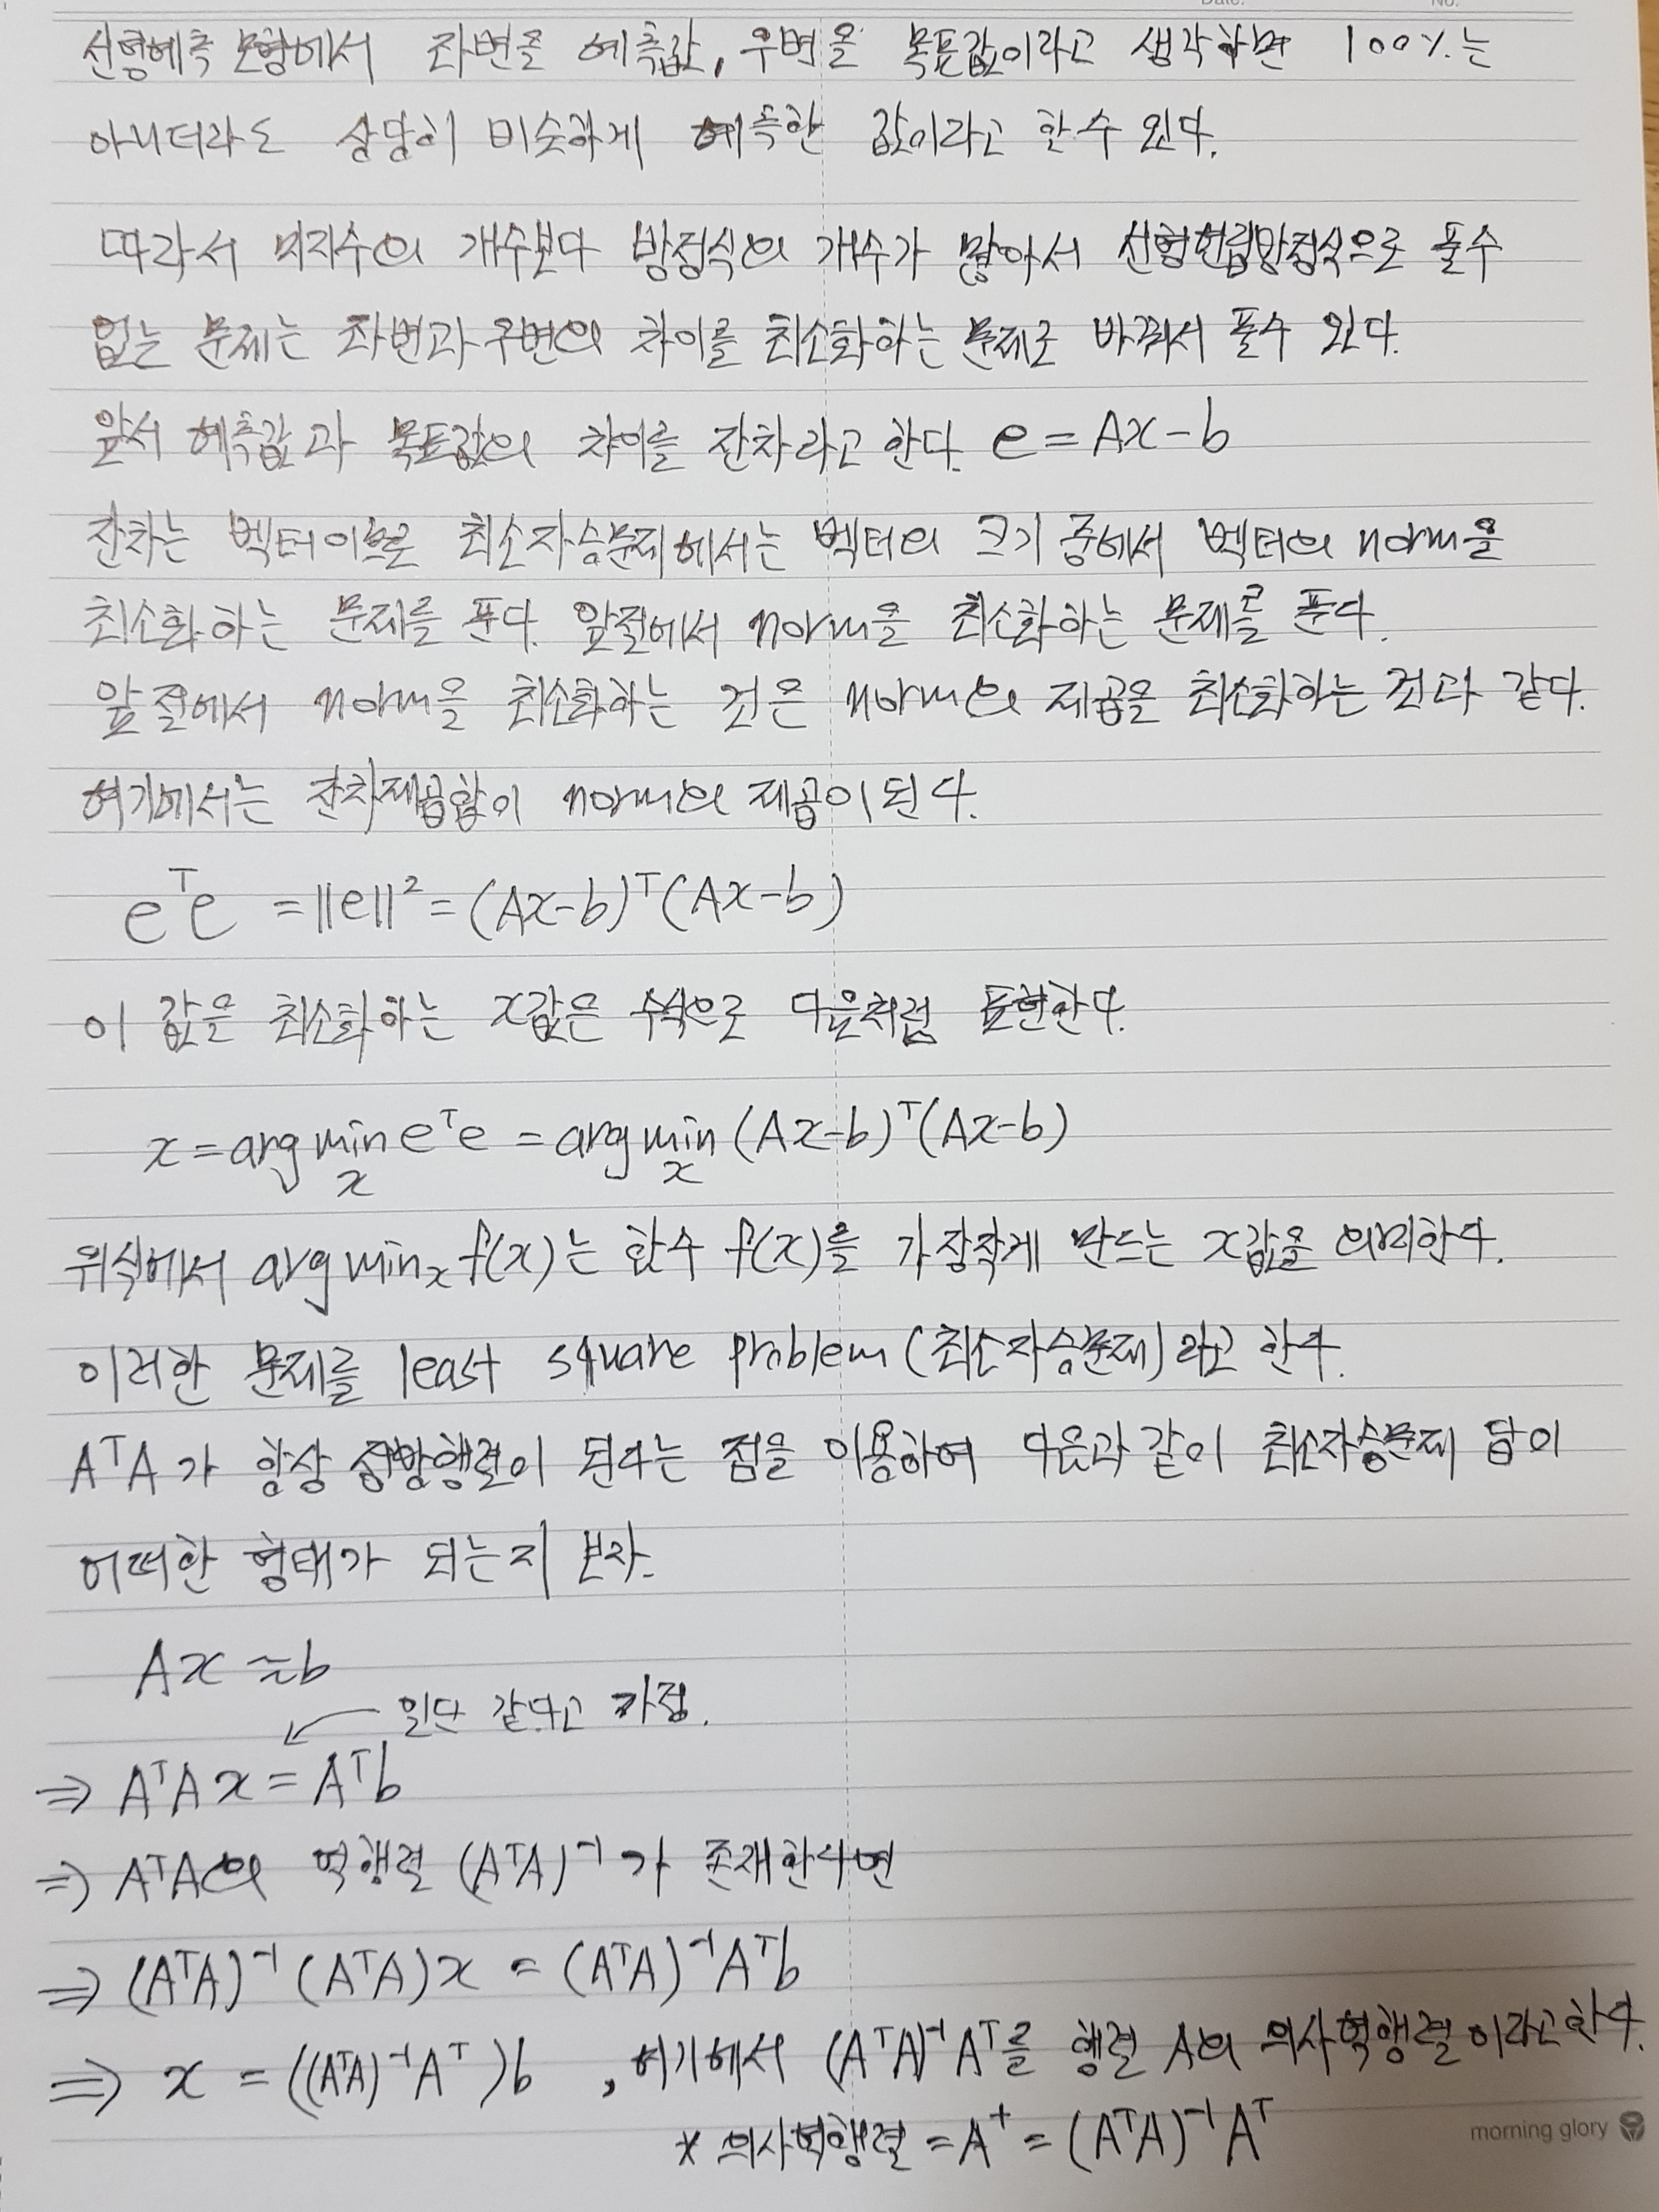 Date. No.
선형예측 모형에서 좌변을 예측값, 우변을 목표값이라고 생각하면 100%는
아니더라도 상당히 비슷하게 예측한 값이라고 할 수 있다.
따라서 미지수의 개수보다 방정식의 개수가 많아서 선형연립방정식으로 풀 수
없는 문제는 좌변과 우변의 차이를 최소화하는 문제로 바꿔서 풀 수 있다.
앞서 예측값과 목표값의 차이를 잔차라고 한다. e = Ax-b
잔차는 벡터이므로 최소자승문제에서는 벡터의 크기 중에서 벡터의 norm을
최소화하는 문제를 푼다. 앞절에서 norm을 최소화하는 문제를 푼다.
앞절에서 norm을 최소화하는 것은 norm의 제곱을 최소화하는 것과 같다.
여기에서는 잔차제곱합이 norm의 제곱이 된다.
eᵀe = ||e||² = (Ax-b)ᵀ(Ax-b)
이 값은 최소화하는 x값은 수식으로 다음처럼 표현한다.
x = arg min_x eᵀe = arg min_x (Ax-b)ᵀ(Ax-b)
위 식에서 arg min_x f(x)는 함수 f(x)를 가장 작게 만드는 x값을 의미한다.
이러한 문제를 least square problem (최소자승문제)라고 한다.
AᵀA가 항상 정방행렬이 된다는 점을 이용하여 다음과 같이 최소자승문제 답이
어떠한 형태가 되는지 보자.
Ax ≈ b
일단 같다고 가정.
⇒ AᵀAx = Aᵀb
⇒ AᵀA의 역행렬 (AᵀA)⁻¹가 존재한다면
⇒ (AᵀA)⁻¹(AᵀA)x = (AᵀA)⁻¹Aᵀb
⇒ x = ((AᵀA)⁻¹Aᵀ)b , 여기에서 (AᵀA)⁻¹Aᵀ를 행렬 A의 의사역행렬이라고 한다.
* 의사역행렬 = A⁺ = (AᵀA)⁻¹Aᵀ
morning glory